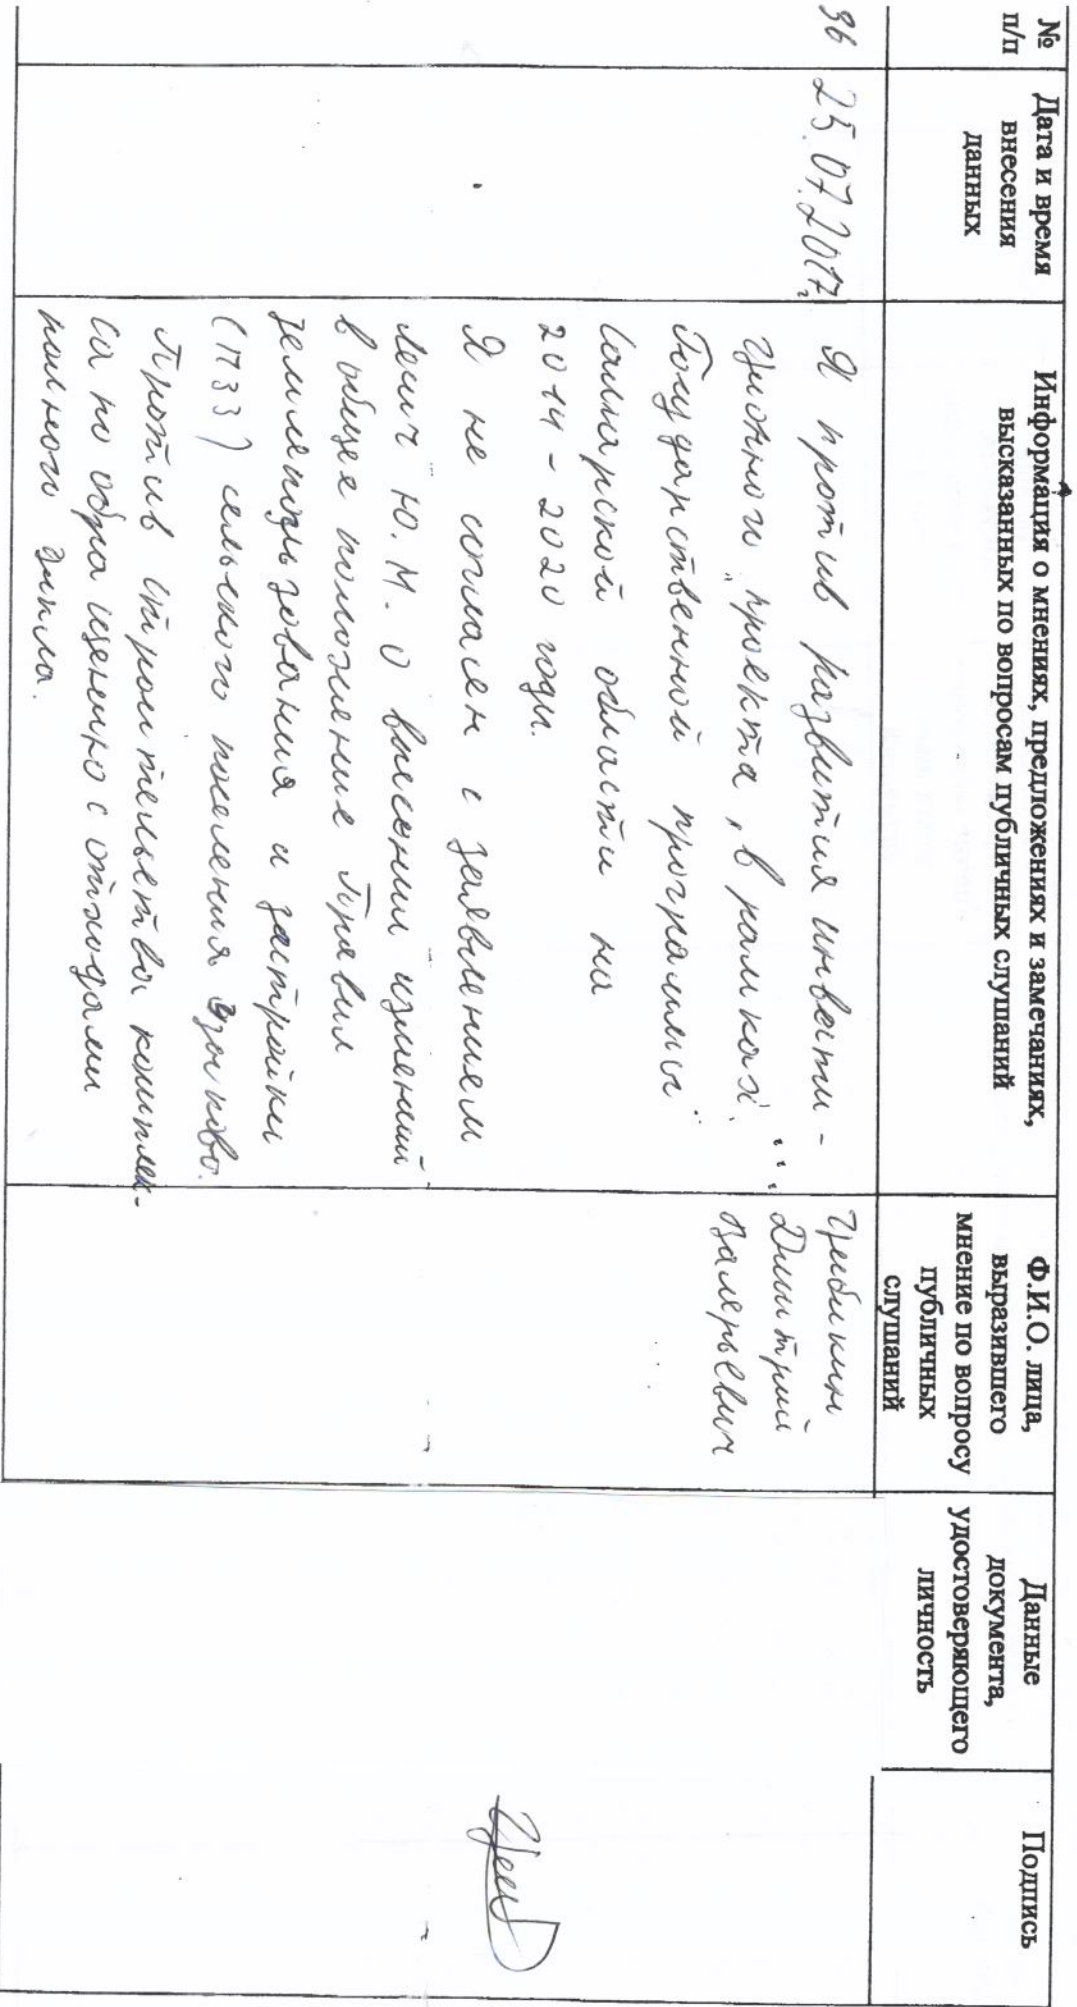 №
п/п
Дата и время
внесения
данных
Информация о мнениях, предложениях и замечаниях,
высказанных по вопросам публичных слушаний
Ф.И.О. лица,
выразившего
мнение по вопросу
публичных
слушаний
Данные
документа,
удостоверяющего
личность
Подпись
36
25.07.2017г
Я против развития инвести-
ционного "проекта, в рамках
Государственной программы
Самарской области на
2014-2020 годы.
Я не согласен с заявлением
Ю.М. о внесении изменений
в общее положение Правил
землепользования и застройки
(ПЗЗ) сельского поселения
Против строительства комплек-
са по обращению с отходами
Дмитрий
Валерьевич